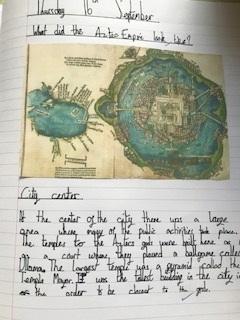 Thursday 16th September
What did the Aztec Empire look like?
City center
At the center of the city there was a large
area where many of the public activities took place.
The temples for the Aztecs gods were built here as
as a court where they played a ballgame called
Ullama. The largest temple was a pyramid called the
Temple Mayor. It was the tallest building in the city in
the order to be closest to the gods.